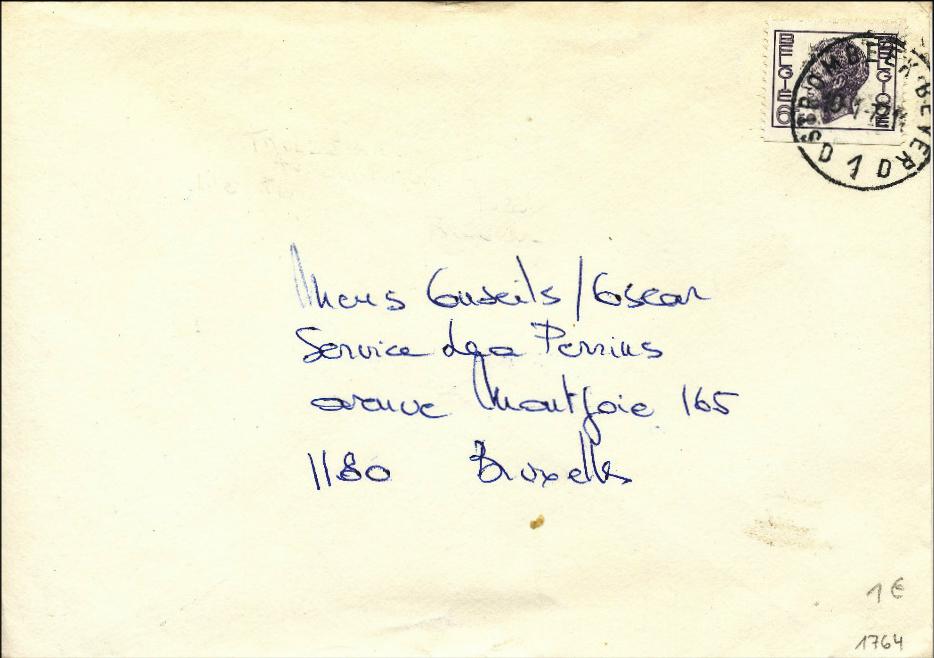 BELGIE BELGIQUE
6
STROMBEEK-BEVER
D 1 D
Mens Conseils / Oscar
Service des Permis
avenue Montjoie 165
1180 Bruxelles
1 €
1764